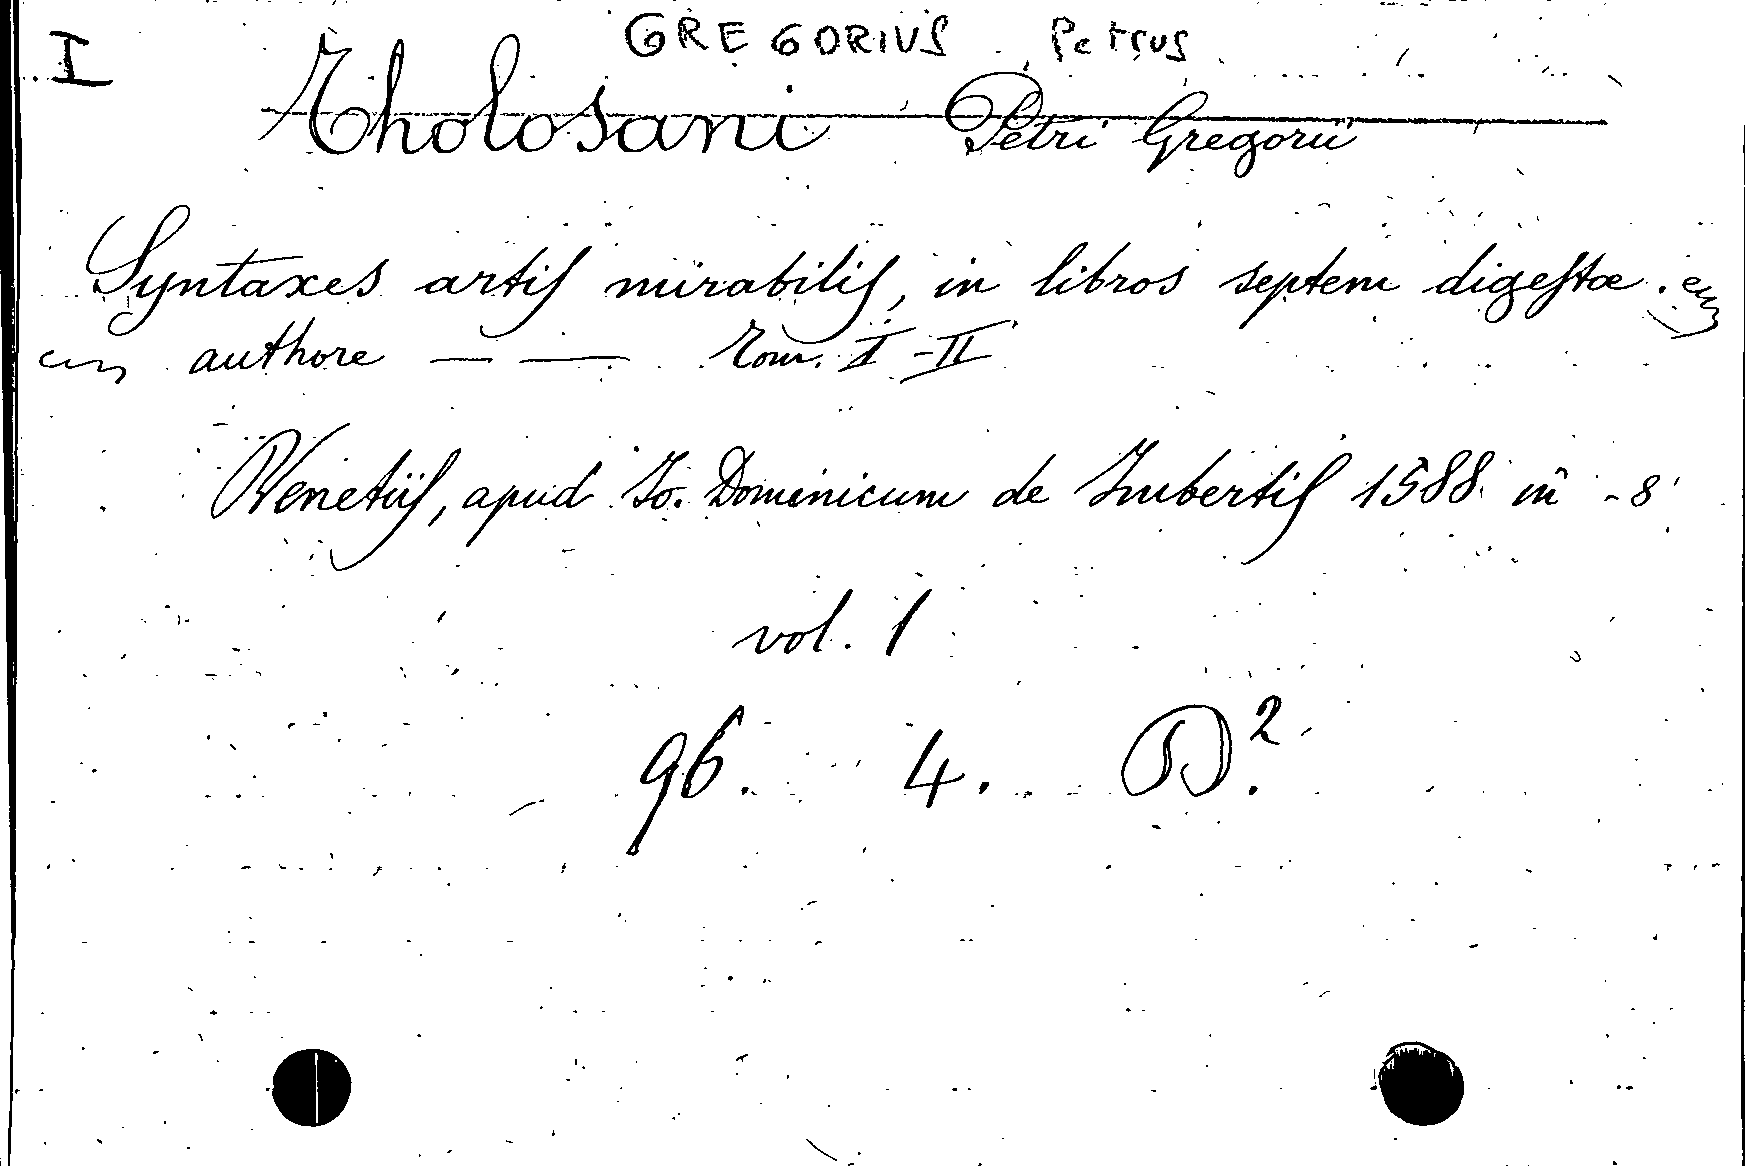 GREGORIUS Petrus
I
Tholosani Petri Gregorii
Syntaxes artis mirabilis, in libros septem digestæ.
authore — — Tom. I-II
Venetiis, apud Io. Dominicum de Imbertis 1588 in -8
vol. 1
96. 4. D².